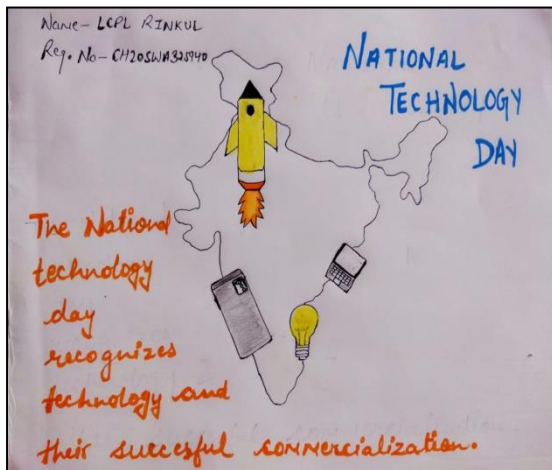 Name- LCPL RINKUL
Reg. No- CH20SWA325940
NATIONAL
TECHNOLOGY
DAY
The National
technology
day
recognizes
technology and
their succesful commercialization.